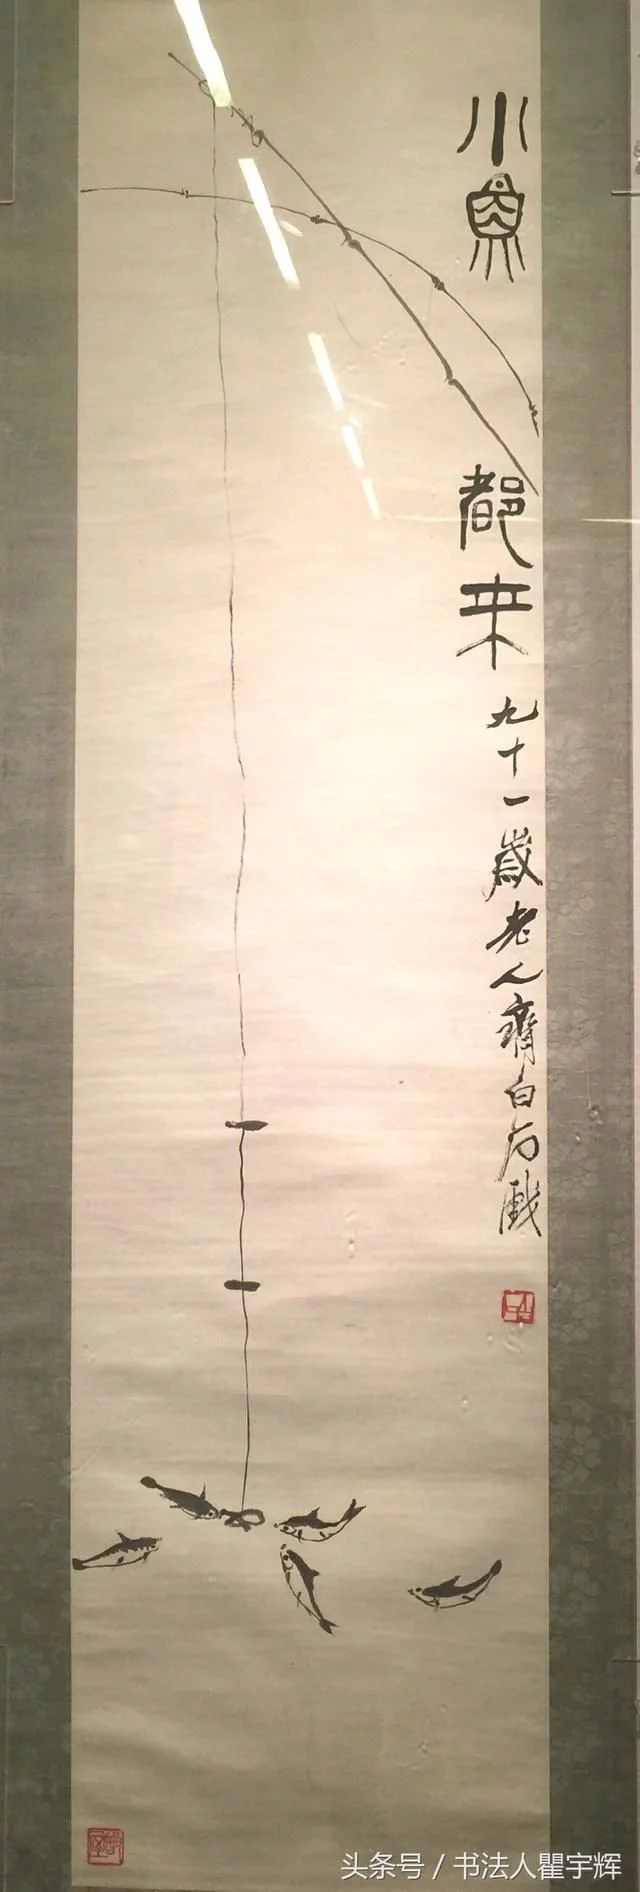 小魚都来
九十一歲老人齊白石戲
头条号 / 书法人瞿宇辉